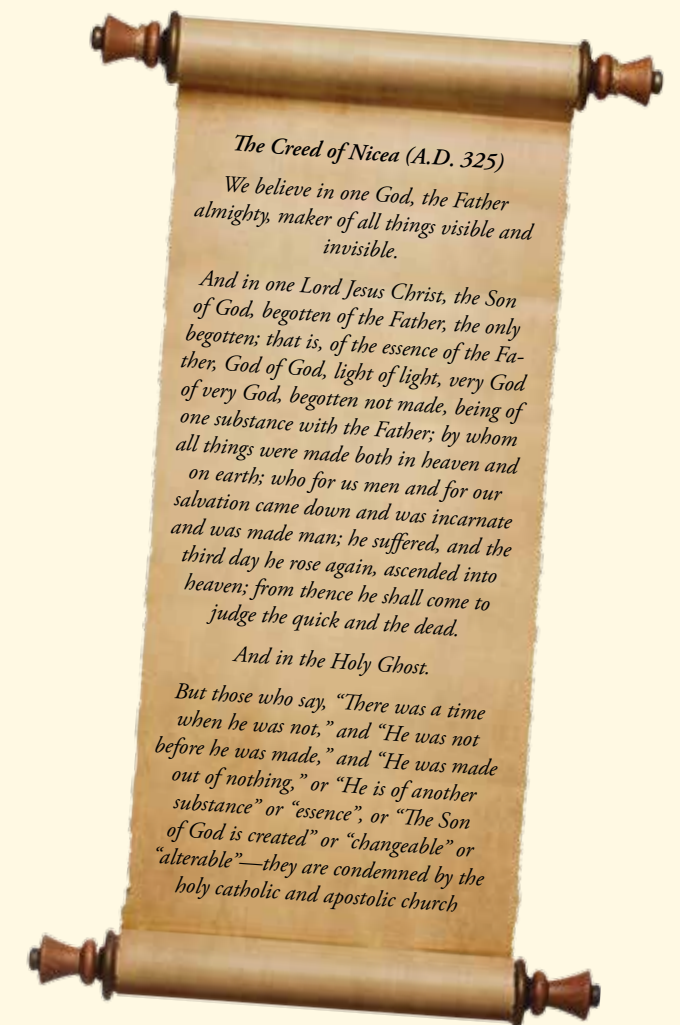 The Creed of Nicea (A.D. 325)
We believe in one God, the Father
almighty, maker of all things visible and
invisible.
And in one Lord Jesus Christ, the Son
of God, begotten of the Father, the only
begotten; that is, of the essence of the Fa-
ther, God of God, light of light, very God
of very God, begotten not made, being of
one substance with the Father; by whom
all things were made both in heaven and
on earth; who for us men and for our
salvation came down and was incarnate
and was made man; he suffered, and the
third day he rose again, ascended into
heaven; from thence he shall come to
judge the quick and the dead.
And in the Holy Ghost.
But those who say, “There was a time
when he was not,” and “He was not
before he was made,” and “He was made
out of nothing,” or “He is of another
substance” or “essence”, or “The Son
of God is created” or “changeable” or
“alterable”—they are condemned by the
holy catholic and apostolic church